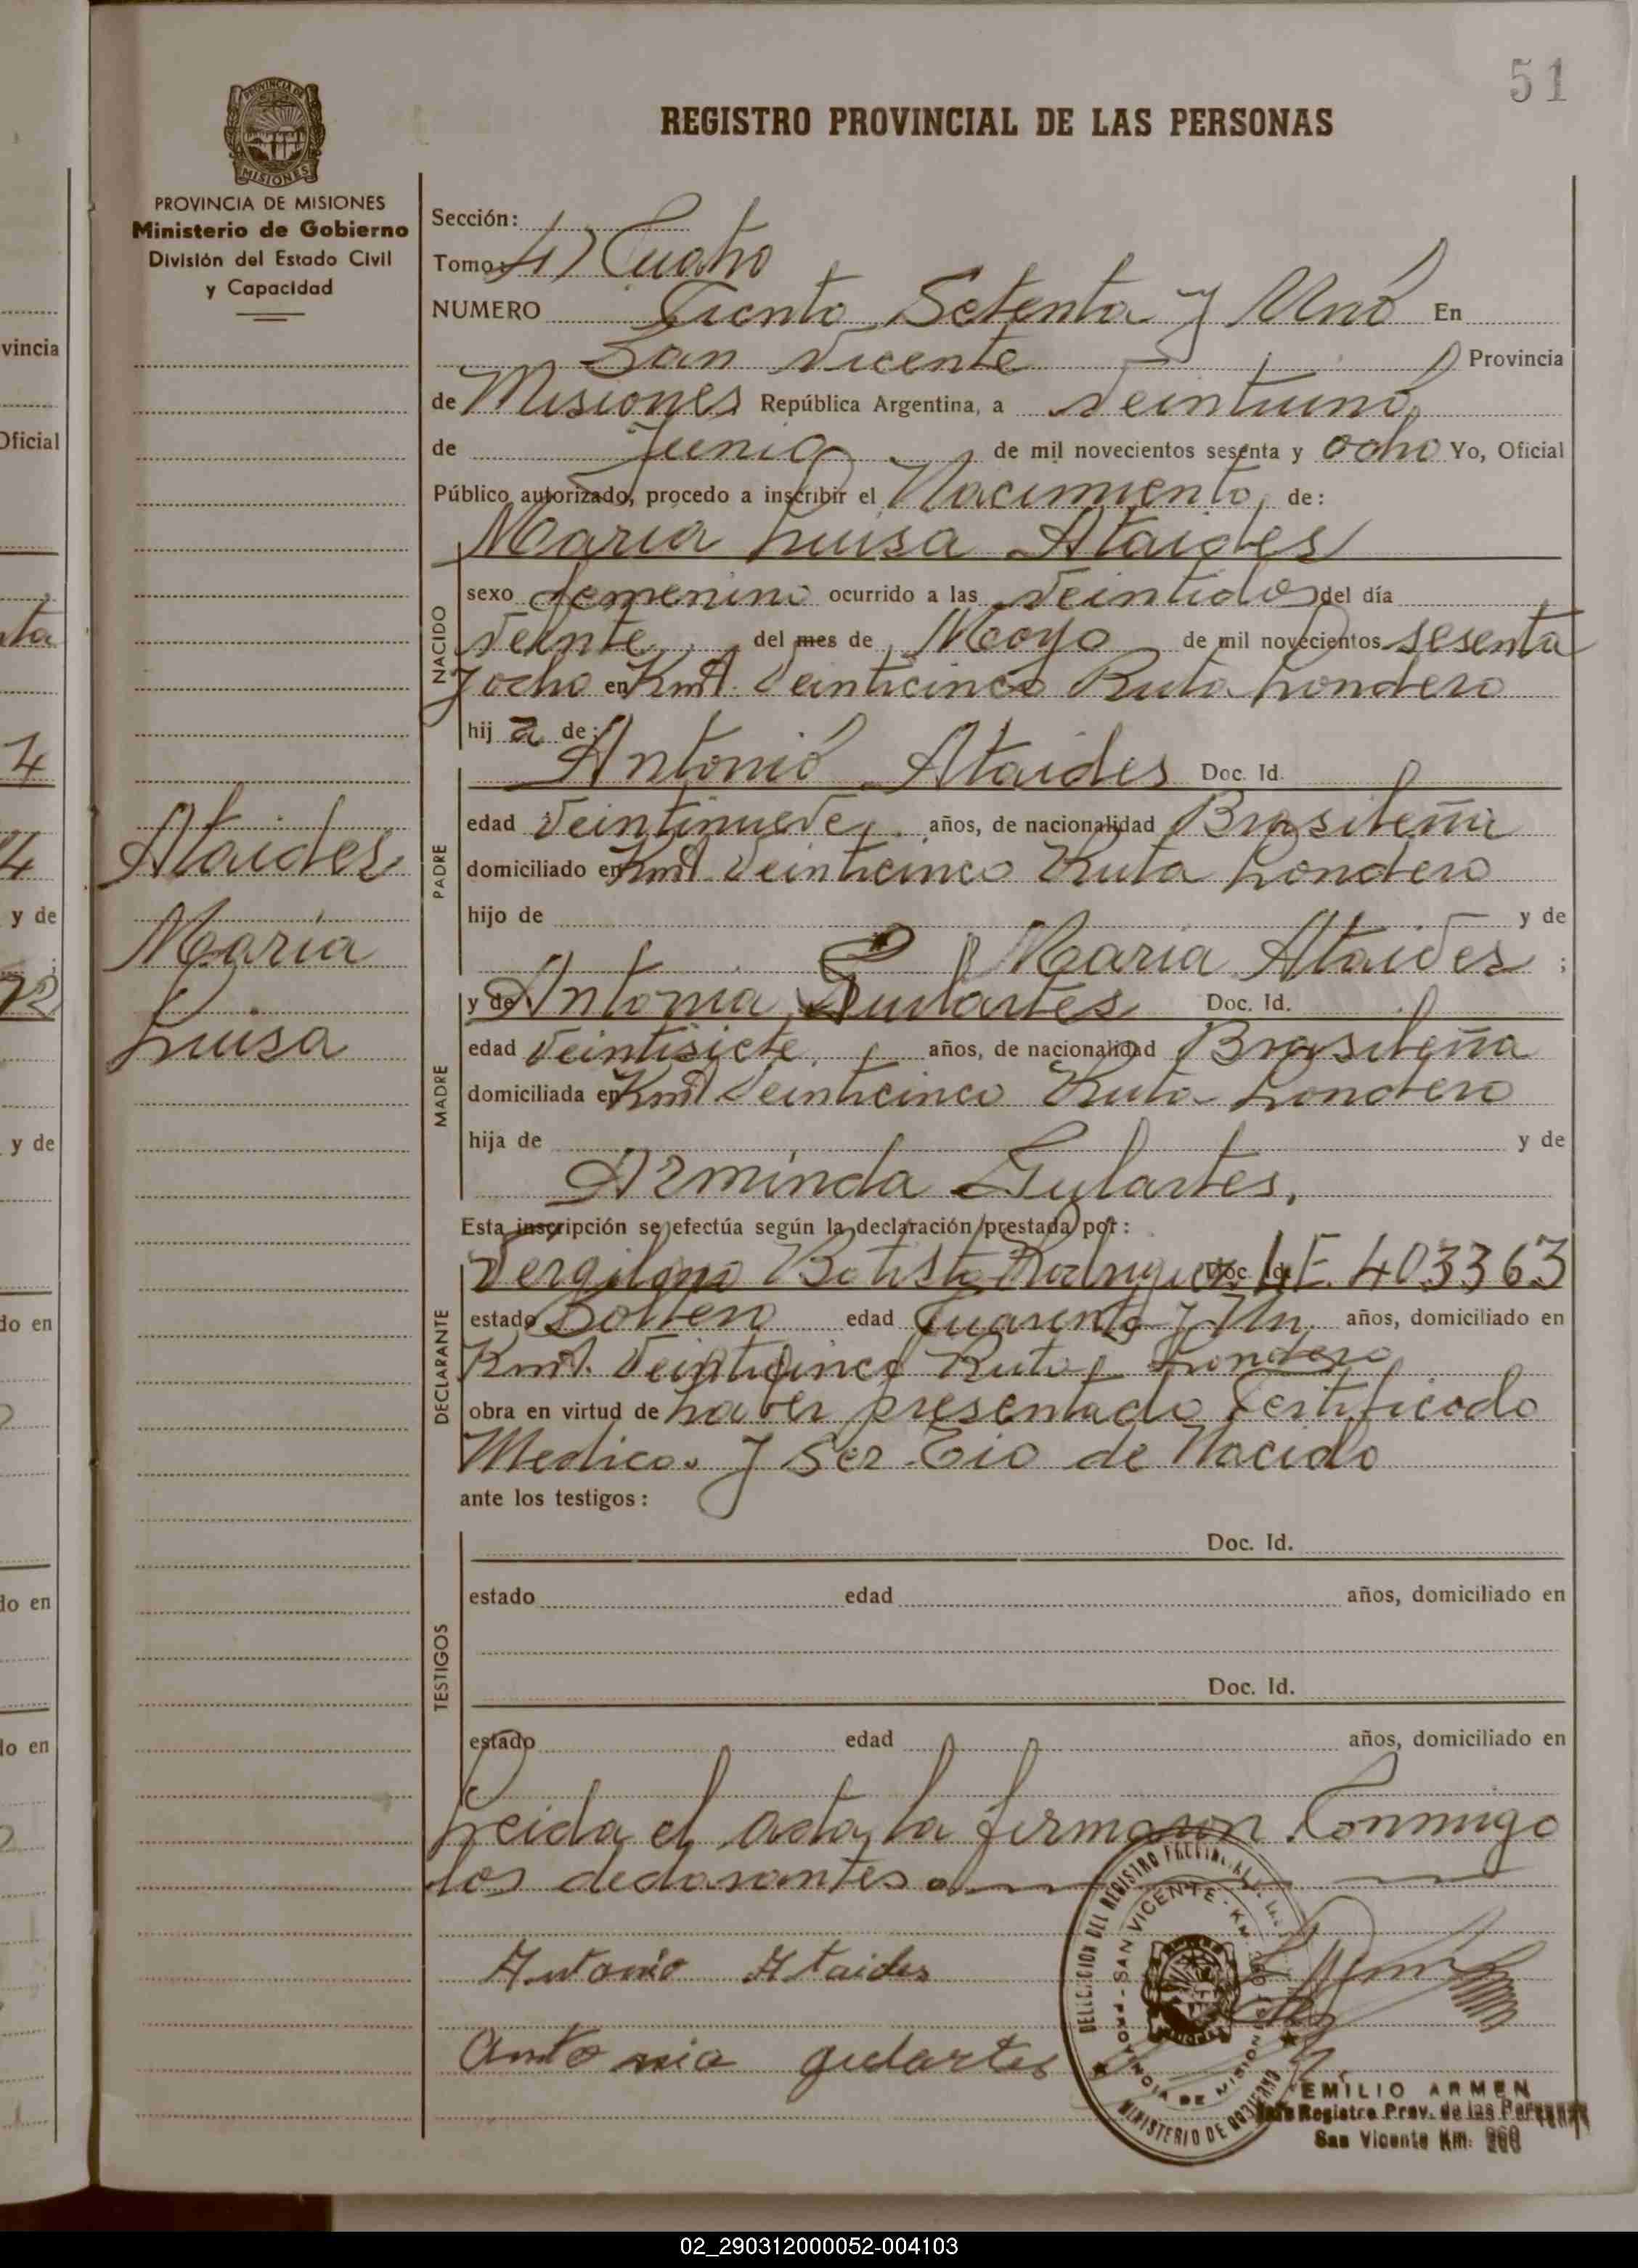 51
REGISTRO PROVINCIAL DE LAS PERSONAS
PROVINCIA DE MISIONES
Ministerio de Gobierno
División del Estado Civil
y Capacidad
Sección:
Tomo: 4) Cuatro
NUMERO Ciento Setenta y Uno En
San Vicente Provincia
de Misiones República Argentina, a Veintiuno
de Junio de mil novecientos sesenta y ocho Yo, Oficial
Público autorizado, procedo a inscribir el Nacimiento de:
Maria Luisa Ataides
NACIDO
sexo femenino ocurrido a las Veintidos del día
Veinte del mes de Mayo de mil novecientos sesenta
y ocho en Kmt. Veinticinco Ruta Londero
hij a de:
Antonio Ataides Doc. Id.
PADRE
edad Veintinueve años, de nacionalidad Brasileña
domiciliado en Kmt Veinticinco Ruta Londero
hijo de y de
Maria Ataides ;
y de Antonia Gulartes Doc. Id.
MADRE
edad Veintisiete años, de nacionalidad Brasileña
domiciliada en Kmt Veinticinco Ruta Londero
hija de y de
Arminda Gulartes.
Esta inscripción se efectúa según la declaración prestada por:
Batista Rodriguez Doc. Id. L.E. 403363
DECLARANTE
estado Soltero edad Cuarenta y Un años, domiciliado en
Kmt. Veinticinco Ruta Londero
obra en virtud de haber presentado Certificado
Medico. y Ser Tio de Nacido
ante los testigos:
Doc. Id.
TESTIGOS
estado edad años, domiciliado en
Doc. Id.
estado edad años, domiciliado en
Leida el acta, la firmaron Conmigo
los declarantes.
Antonio Ataides
Antonia gulartes
DELEGACION DEL REGISTRO PROVINCIAL
SAN VICENTE - KM
PROVINCIA DE MISIONES
MINISTERIO DE GOBIERNO
EMILIO ARMEN
Registro Prov. de las Personas
San Vicente Km.
Ataides
Maria
Luisa
vincia
Oficial
y de
y de
do en
do en
do en
02_290312000052-004103